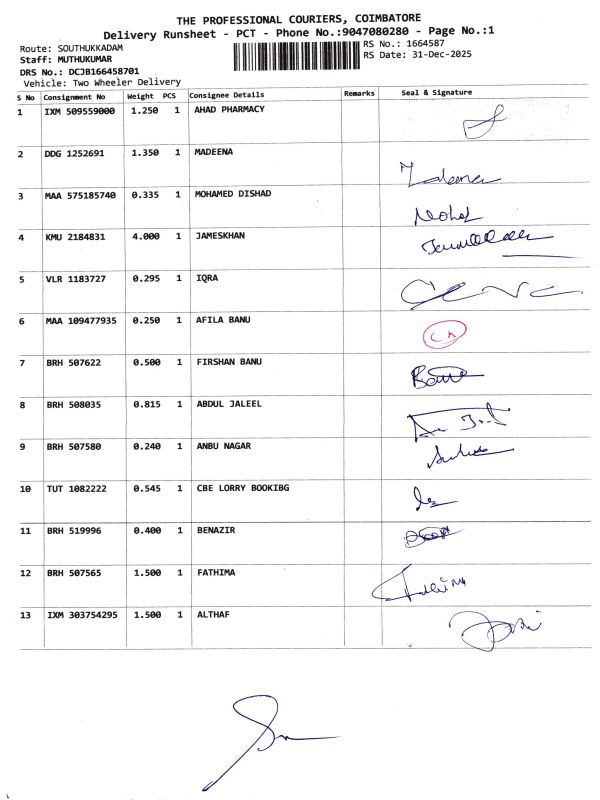 THE PROFESSIONAL COURIERS, COIMBATORE
Delivery Runsheet - PCT - Phone No.:9047080280 - Page No.:1
Route: SOUTHUKKADAM
RS No.: 1664587
Staff: MUTHUKUMAR
RS Date: 31-Dec-2025
DRS No.: DCJB166458701
Vehicle: Two Wheeler Delivery
S No Consignment No Weight PCS Consignee Details Remarks Seal & Signature
1 IXM 509559000 1.250 1 AHAD PHARMACY
2 DDG 1252691 1.350 1 MADEENA Madeena
3 MAA 575185740 0.335 1 MOHAMED DISHAD Mohd
4 KMU 2184831 4.000 1 JAMESKHAN
5 VLR 1183727 0.295 1 IQRA
6 MAA 109477935 0.250 1 AFILA BANU
7 BRH 507622 0.500 1 FIRSHAN BANU Banu
8 BRH 508035 0.815 1 ABDUL JALEEL
9 BRH 507580 0.240 1 ANBU NAGAR
10 TUT 1082222 0.545 1 CBE LORRY BOOKIBG
11 BRH 519996 0.400 1 BENAZIR
12 BRH 507565 1.500 1 FATHIMA Fathima
13 IXM 303754295 1.500 1 ALTHAF